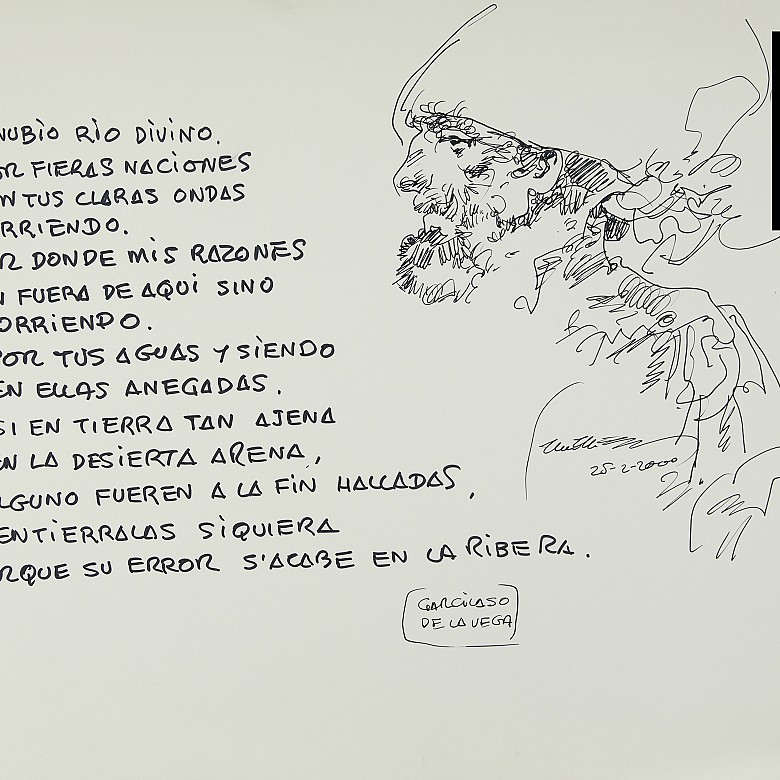 NUBIO RIO DIVINO.
OR FIERAS NACIONES
N TUS CLARAS ONDAS
RRIENDO.
R DONDE MIS RAZONES
N FUERA DE AQUI SINO
ORRIENDO.
POR TUS AGUAS Y SIENDO
EN ELLAS ANEGADAS.
SI EN TIERRA TAN AJENA
EN LA DESIERTA ARENA,
LGUNO FUEREN A LA FIN HALLADAS,
ENTIERRALAS SIQUIERA
RQUE SU ERROR S'ACABE EN LA RIBERA.
25-2-2000
GARCILASO
DE LA VEGA